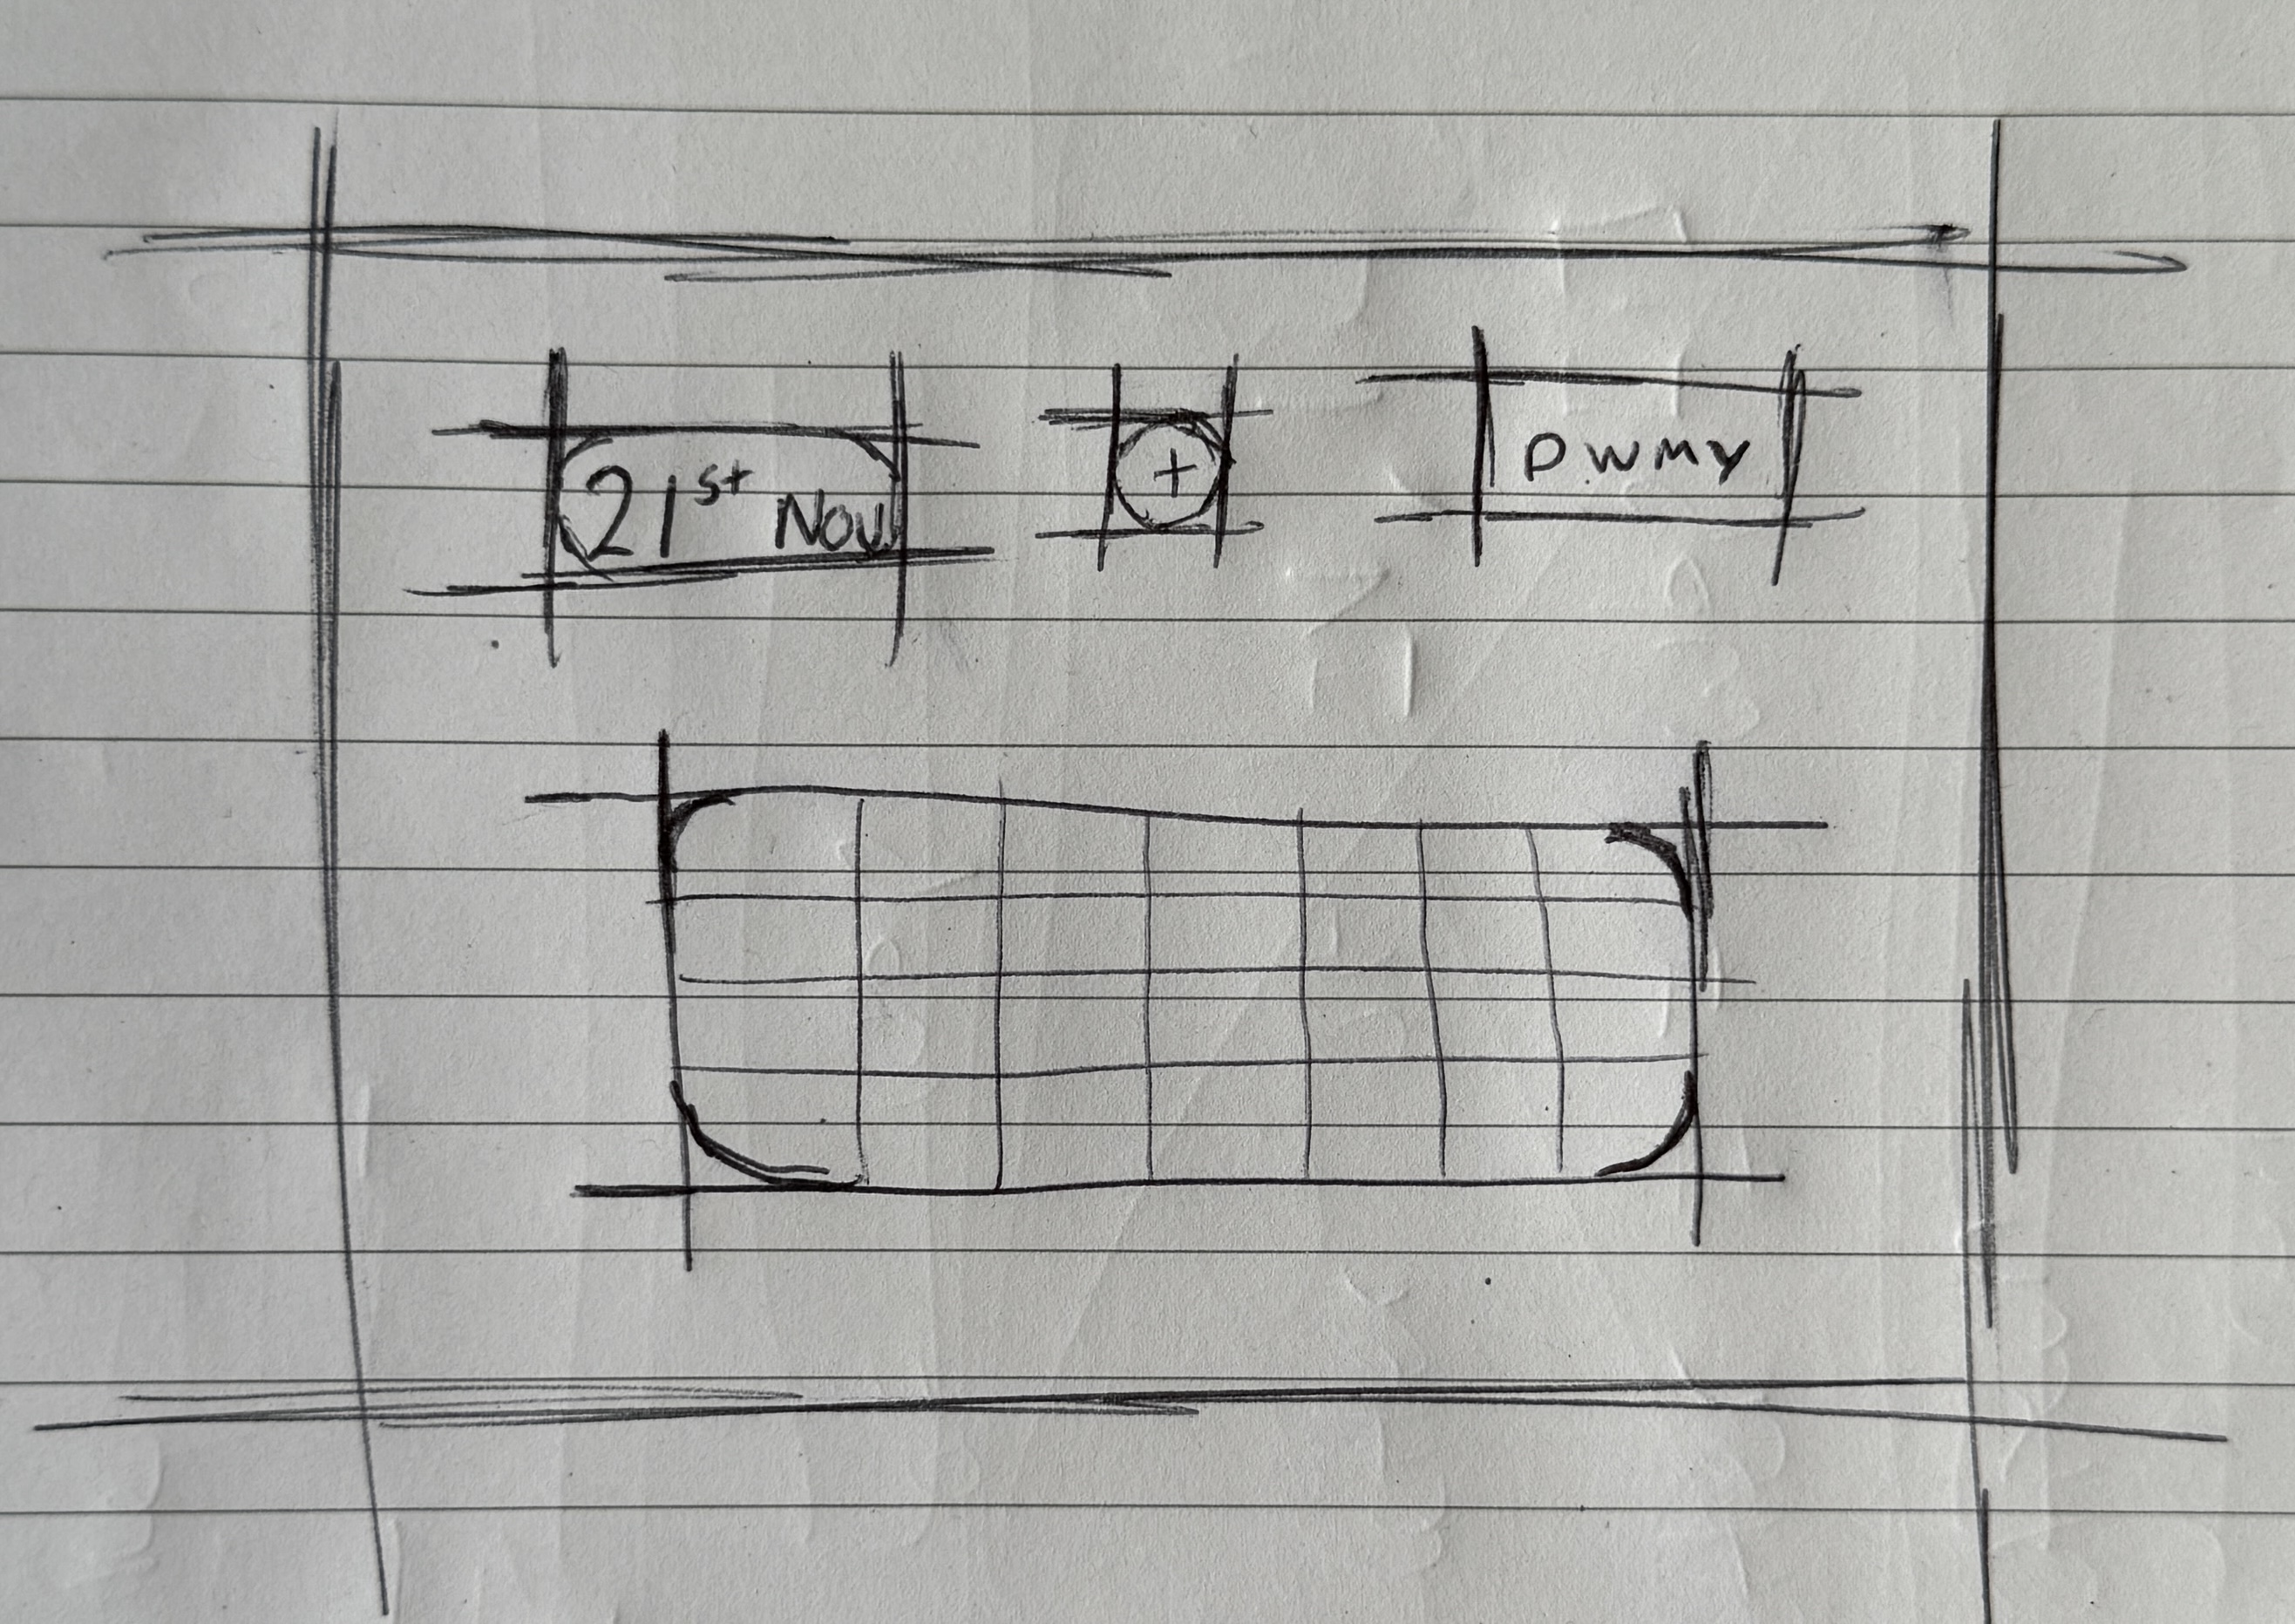 21st Nov
+
DWMY